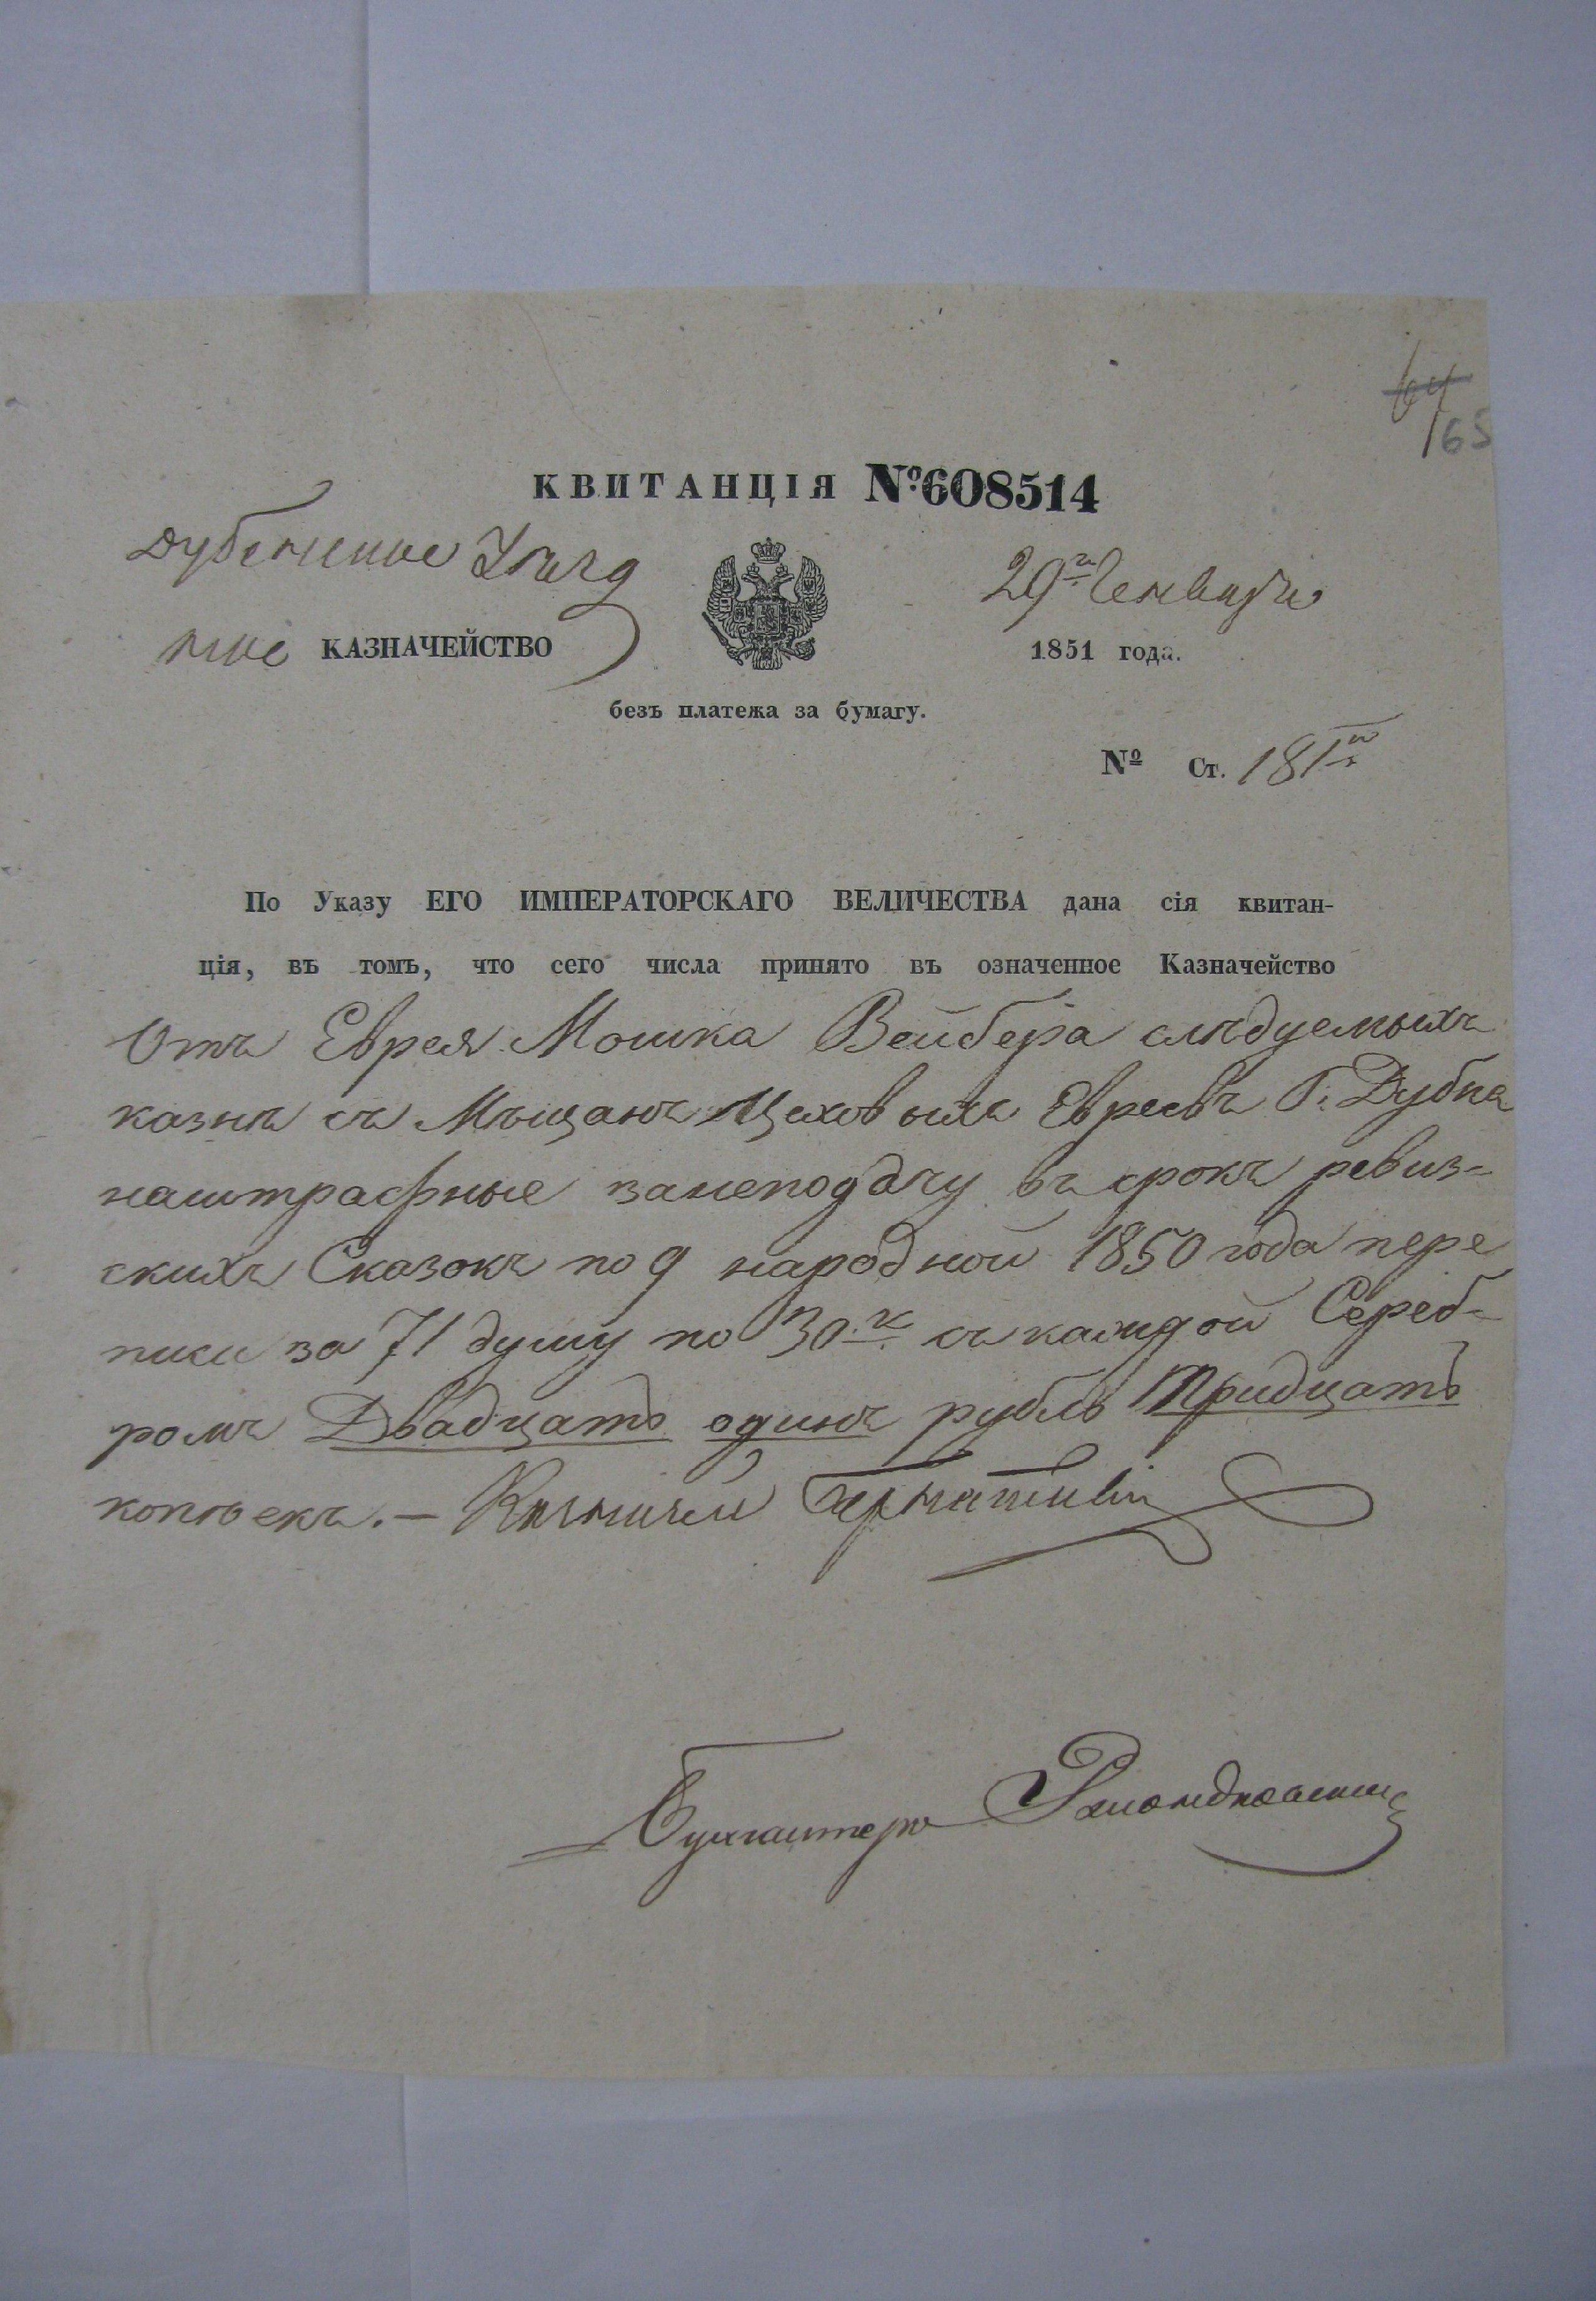 64
165
КВИТАНЦІЯ №608514
Дубенское Уѣзд
ное КАЗНАЧЕЙСТВО
29го Генваря
1851 года.
безъ платежа за бумагу.
№ Ст. 181й
По Указу ЕГО ИМПЕРАТОРСКАГО ВЕЛИЧЕСТВА дана сія квитан-
ція, въ томъ, что сего числа принято въ означенное Казначейство
Отъ Еврея Мошка Вейбера слѣдуемыхъ
казнѣ съ Мѣщанъ Цеховыхъ Евреевъ Г. Дубна
наштрафные занеподачу въ срокъ ревиз-
скихъ Сказокъ по 9 народной 1850 года пере
писи за 71 душу по 30 к. съ каждой Сереб-
ромъ Двадцать одинъ рубль Тридцать
копѣекъ. — Казначей
Бухгалтеръ